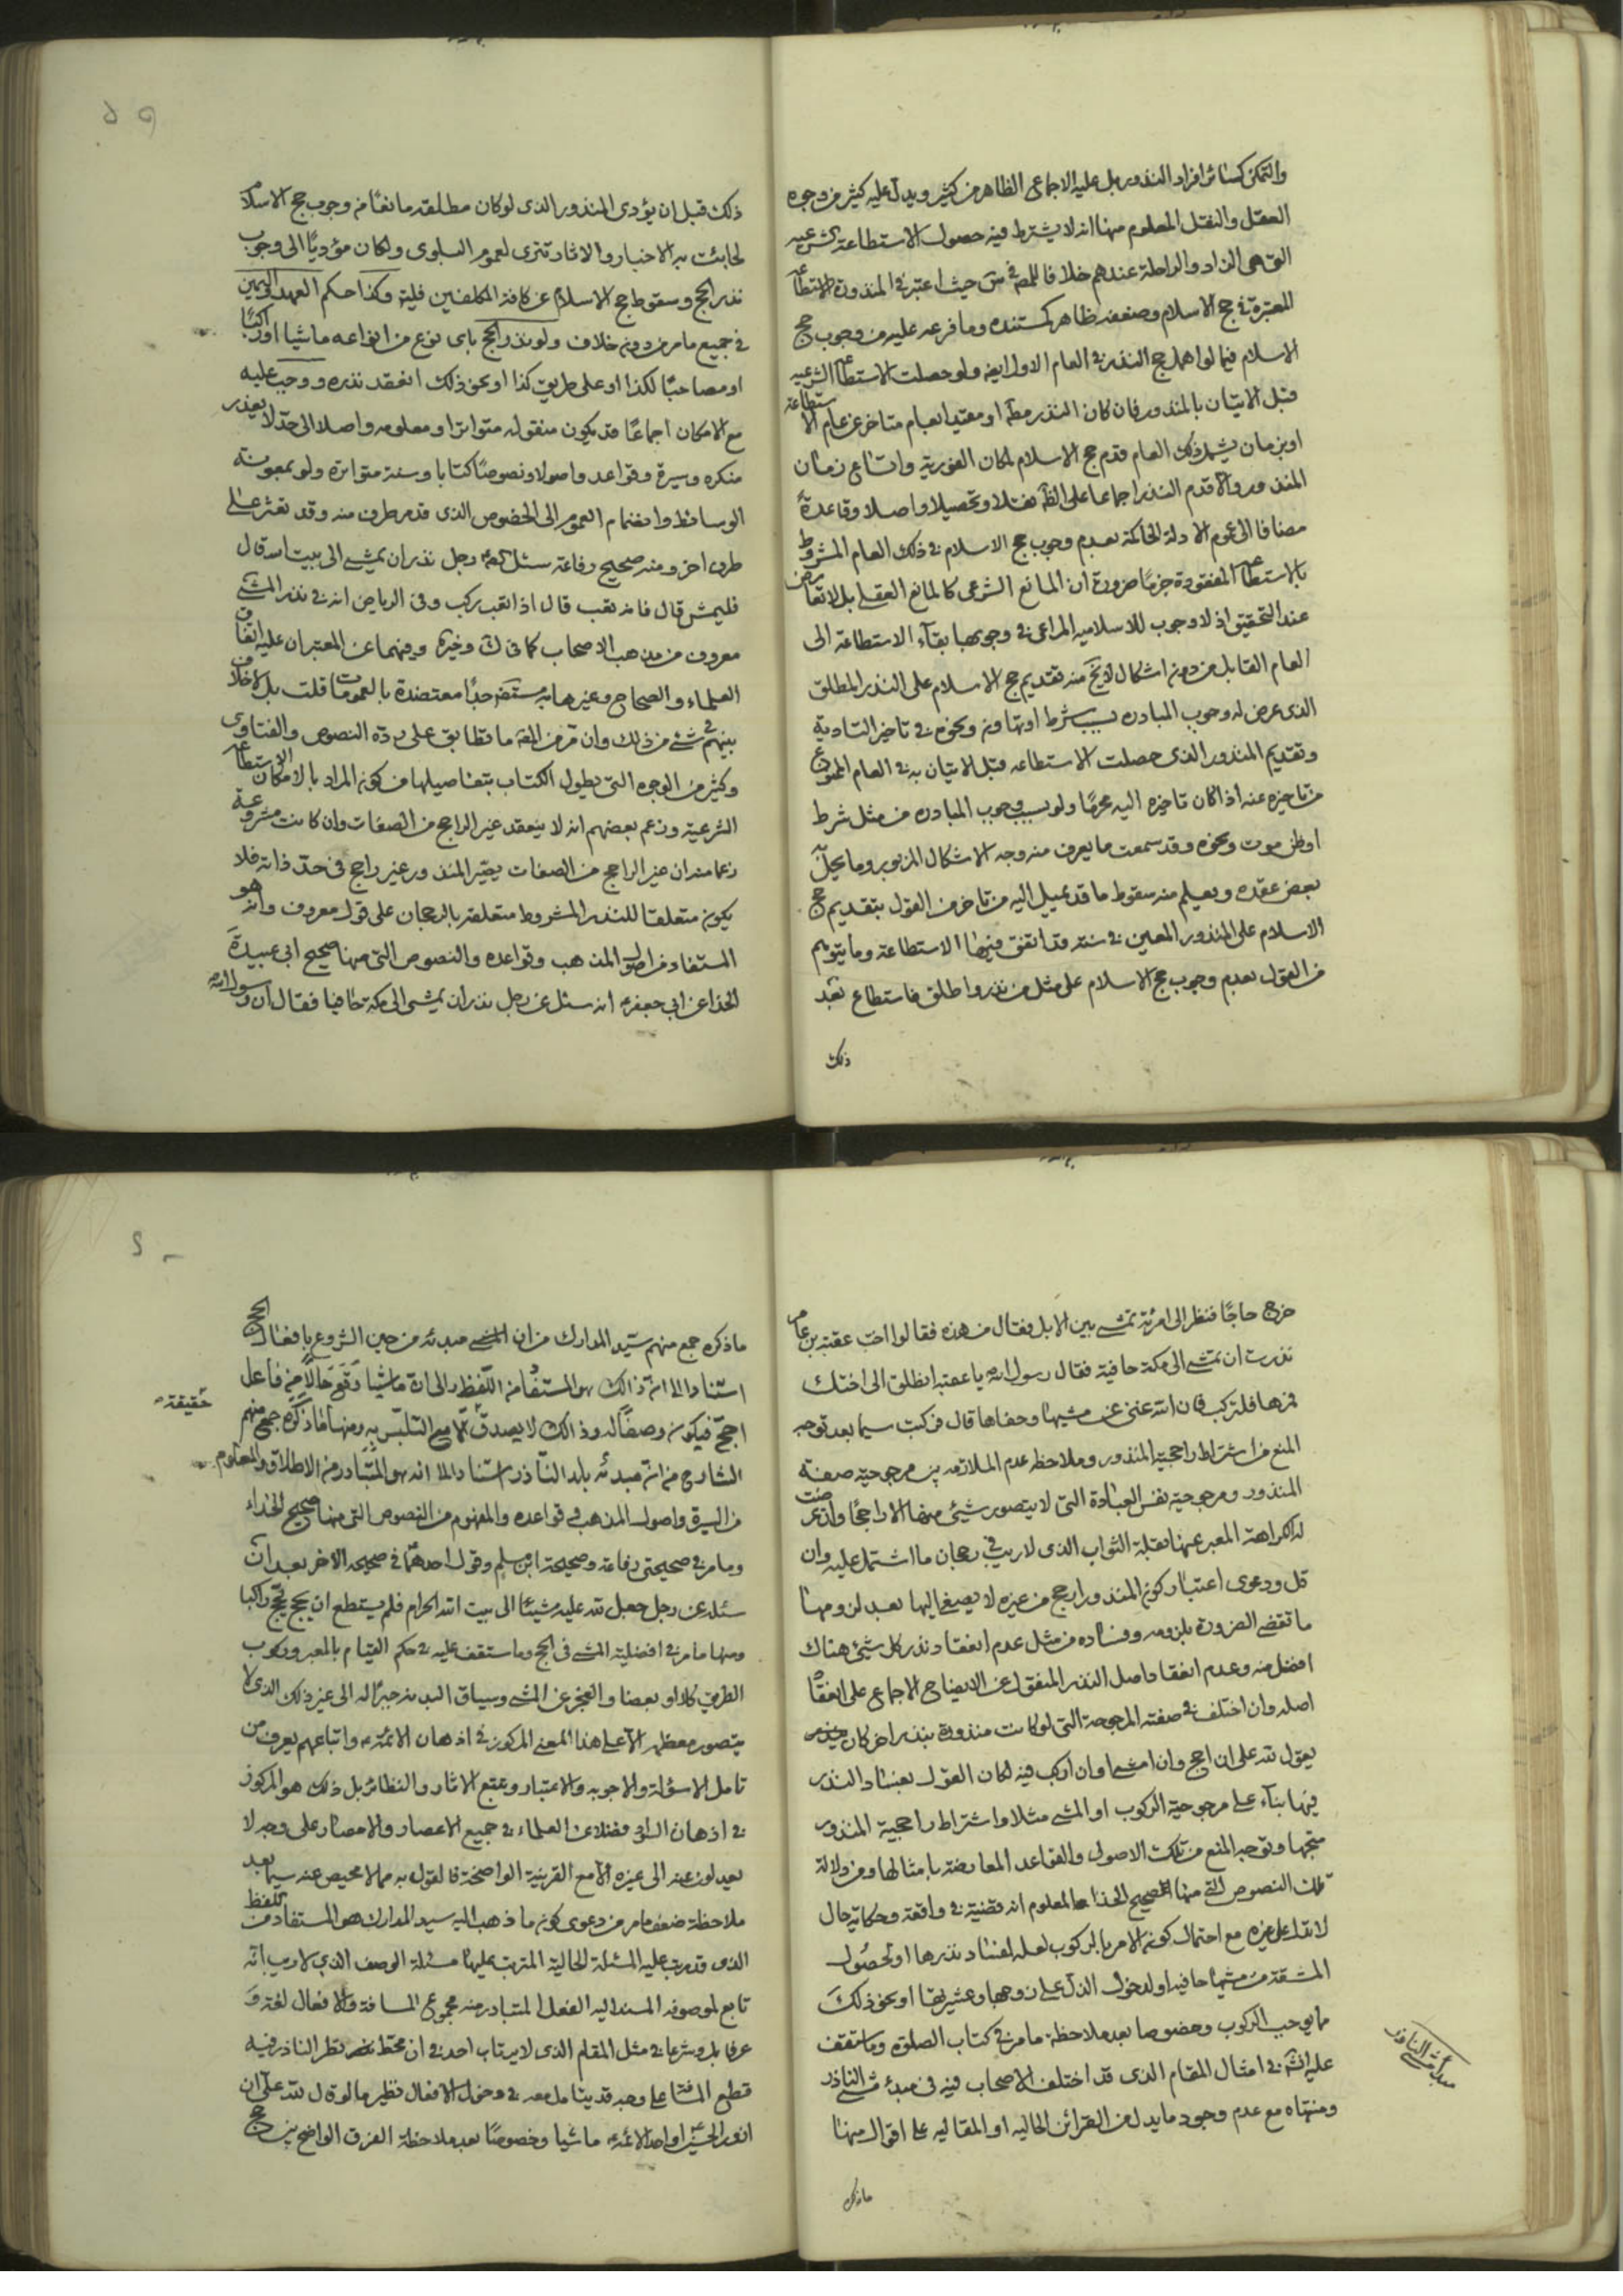 والتمكن كسائر افراد النذور بل عليه الاجماع الظاهر من كثير ويدل عليه كثير من وجوه
العقل والنقل المعلوم منها انه لا يشترط فيه حصول الاستطاعة الشرعيه
التى هى الزاد والراحلة عندهم خلافا للمص فى س حيث اعتبر فى المنذورة الاستطاعة
المعتبرة فى حج الاسلام وضعفه ظاهر كمستنده وما فرعه عليه من وجوب حج
الاسلام فيما لو اهمل حج النذر فى العام الاول ايضه ولو حصلت الاستطاعة الشرعيه
قبل الاتيان بالمنذور فان كان النذر مطه او مقيدا بعام متاخر عن عام الاستطاعة
او بزمان يشمل ذلك العام قدم حج الاسلام لمكان الفورية واتساع زمان
المنذور والا قدم النذر اجماعا على الظه نقلا وتحصيلا واصلا وقاعدة
مضافا الى عموم الادلة الحاكمة بعدم وجوب حج الاسلام فى ذلك العام المشروط
بالاستطاعة المفقودة جزما ضرورة ان المانع الشرعى كالمانع العقلى بل لا تعارض
عند التحقيق اذ لا وجوب للاسلاميه المراعى فى وجوبها بقاء الاستطاعة الى
العام القابل من دون اشكال لا يخ منه تقديم حج الاسلام على النذر المطلق
الذى عرض له وجوب المبادره بسبب شرط او تهاون ونحوه فى تاخير التادية
وتقديم المنذور الذى حصلت الاستطاعه قبل الاتيان به فى العام الممنوع
من تاخيره عنه اذا كان تاخيره اليه محرما ولو بسبب وجوب المبادره من مثل شرط
او ظن موت ونحوه وقد سمعت ما يعرف منه وجه الاشكال المزبور وما يحل
بعض عقده ويعلم منه سقوط ما قد يميل اليه من تاخر من القول بتقديم حج
الاسلام على المنذور المعين فى سنة قد اتفق فيها الاستطاعة وما يتوهم
من القول بعدم وجوب حج الاسلام على مثل من نذر واطلق فاستطاع بعد
ذلك
ذلك قبل ان يؤدى المنذور الذى لو كان مطلقه مانعا من وجوب حج الاسلام
لجائت به الاخبار والاثار تترى لعموم البلوى ولكان مؤديا الى وجوب
نذر الحج وسقوط حج الاسلام عن كافة المكلفين فليته وكذا حكم العهد واليمين
فى جميع ما مر من دون خلاف ولو نذر الحج باى نوع من انواعه ماشيا او راكبا
او مصاحبا لكذا او على طريق كذا او نحو ذلك انعقد نذره ووجب عليه
مع الامكان اجماعا قد يكون منقوله متواترا ومعلومه واصلا الى حد لا يعذر
منكره وسيرة وقواعد واصولا ونصوصا كتابا وسنة متواترة ولو بمعونة
الوسائط وانضمام العموم الى الخصوص الذى قد مر طرف منه وقد تعثر على
طرف اخر ومنه صحيح رفاعة سئل عن رجل نذر ان يمشى الى بيت الله قال
فليمش قال فانه تعب قال اذا تعب ركب وفى الرياض انه فى نذر المشى
معروف من مذهب الاصحاب كما فى ك وغيره وفيهما عن المعتبر ان عليه اتفاق
العلماء والصحاح وغيرها به مستفيضه جدا معتضدة بالعمومات قلت بل لا خلاف
بينهم فى شئ من ذلك وان فرض الفه ما تطابق على رده النصوص والفتاوى
وكثير من الوجوه التى يطول الكتاب بتفاصيلها من كون المراد بالامكان الاستطاعة
الشرعية وزعم بعضهم انه لا ينعقد غير الراجح من الصفات وان كانت مشروعة
زعما منه ان غير الراجح من الصفات يصير المنذور غير راجح فى حد ذاته فلا
يكون متعلقا للنذر المشروط متعلقه بالرجحان على قول معروف وانه هو
المستفاد من اصول المذهب وقواعده والنصوص التى منها صحيح ابى عبيدة
الحذا عن ابى جعفر انه سئل عن رجل نذر ان يمشى الى مكة حافيا فقال ان رسول الله
خرج حاجا فنظر الى امرئة تمشى بين الابل فقال من هذه فقالوا اخت عقبة بن عامر
نذرت ان تمشى الى مكة حافية فقال رسول الله يا عقبة انطلق الى اختك
فمرها فلتركب فان الله غنى عن مشيها وحفاها قال فركبت سيما بعد توجه
المنع من اشتراط راجحية المنذور وملاحظة عدم الملازمه بين مرجوحية صفة
المنذور ومرجوحية نفس العبادة التى لا يتصور شيئ منها الا راجحا وان عرضت
له الكراهة المعبر عنها بقلة الثواب الذى لا ريب فى رجحان ما اشتمل عليه وان
قل ودعوى اعتبار كون المنذور ارجح من غيره لا يصغى اليها بعد لزومها
ما تقضى الضرورة بلزومه وفساده من مثل عدم انعقاد نذر كل شيئ هناك
افضل منه وعدم انعقاد اصل النذر المنقول عن الايضاح الاجماع على انعقاد
اصله وان اختلف فى صفته المرجوحة التى لو كانت منذورة بنذر اخر كان
يقول لله على ان احج وان امشى او ان اركب فيه لكان القول بفساد النذر
فيها بناء على مرجوحية الركوب او المشى مثلا واشتراط راجحية المنذور
متجها وتوجه المنع من تلك الاصول والقواعد المعارضة بامثالها ومن دلالة
تلك النصوص التى منها صحيح الحذا المعلوم انه قضية فى واقعة وحكاية حال
لا تدل على غيره مع احتمال كون الامر بالركوب لعله لفساد نذرها او لحصول
المشقة من مشيها حافيه او لدخول الذل على زوجها وعشيرتها او نحو ذلك
ما يوجب الركوب وخصوصا بعد ملاحظة ما مر فى كتاب الصلوة وما ستقف
عليه انش فى امثال المقام الذى قد اختلف الاصحاب فيه فى مبدء مشى الناذر
ومنتهاه مع عدم وجود ما يدل من القرائن الحاليه او المقاليه على اقوال منها
مبدء مشى الناذر
ما ذكره
ما ذكره جمع منهم سيد المدارك من ان المشى مبدئه من حين الشروع بافعال الحج
استنادا الى ان ذلك هو المستفاد من اللفظ دالى ان ماشيا وقع حالا من فاعل
احج فيكون وصفا له وذلك لا يصدق الا مع التلبس به ومنها ما ذكره جمع منهم
حقيقة
الشارح من ان مبدئه بلد الناذر استنادا الى انه هو المتبادر من الاطلاق والمعلوم
من السيرة واصول المذهب وقواعده والمفهوم من النصوص التى منها صحيح الحذاء
وما مر فى صحيحتى رفاعة وصحيحة ابن مسلم وقول احدهما فى صحيحه الاخر بعد ان
سئله عن رجل جعل لله عليه مشيا الى بيت الله الحرام فلم يستطع ان يحج يحج راكبا
ومنها ما مر فى افضلية المشى فى الحج وما ستقف عليه فى حكم القيام بالمعبر وركوب
الطريق كلا او بعضا والعجز عن المشى وسياق البدنه جبرا له الى غير ذلك الذى لا
يتصور معظمه الا على هذا المعنى المركوز فى اذهان الائمة واتباعهم يعرف من
تامل الاسؤلة والاجوبه والاعتبار وتتبع الاثار والنظائر بل ذلك هو المركوز
فى اذهان السواد فضلا عن العلماء فى جميع الاعصار والامصار على وجه لا
يعدلون عنه الى غيره الا مع القرينة الواضحة فالقول به مما لا محيص عنه سيما بعد
ملاحظة ضعف ما مر من دعوى كون ما ذهب اليه سيد المدارك هو المستفاد من اللفظ
الذى قد رتب عليه المسئلة الحالية المترتب عليها مسئلة الوصف الذى لا ريب انه
تابع لموصوفه المسند اليه الفعل المتبادر منه مجموع المسافة والافعال لغة و
عرفا بل وشرعا فى مثل المقام الذى لا يرتاب احد فى ان محط نظر الناذر فيه
قطع المسافة على وجه قد يتامل معه فى دخول الافعال نظير ما لو قال لله على ان
ازور الحسين او احد الائمة ماشيا وخصوصا بعد ملاحظة الفرق الواضح بين حج